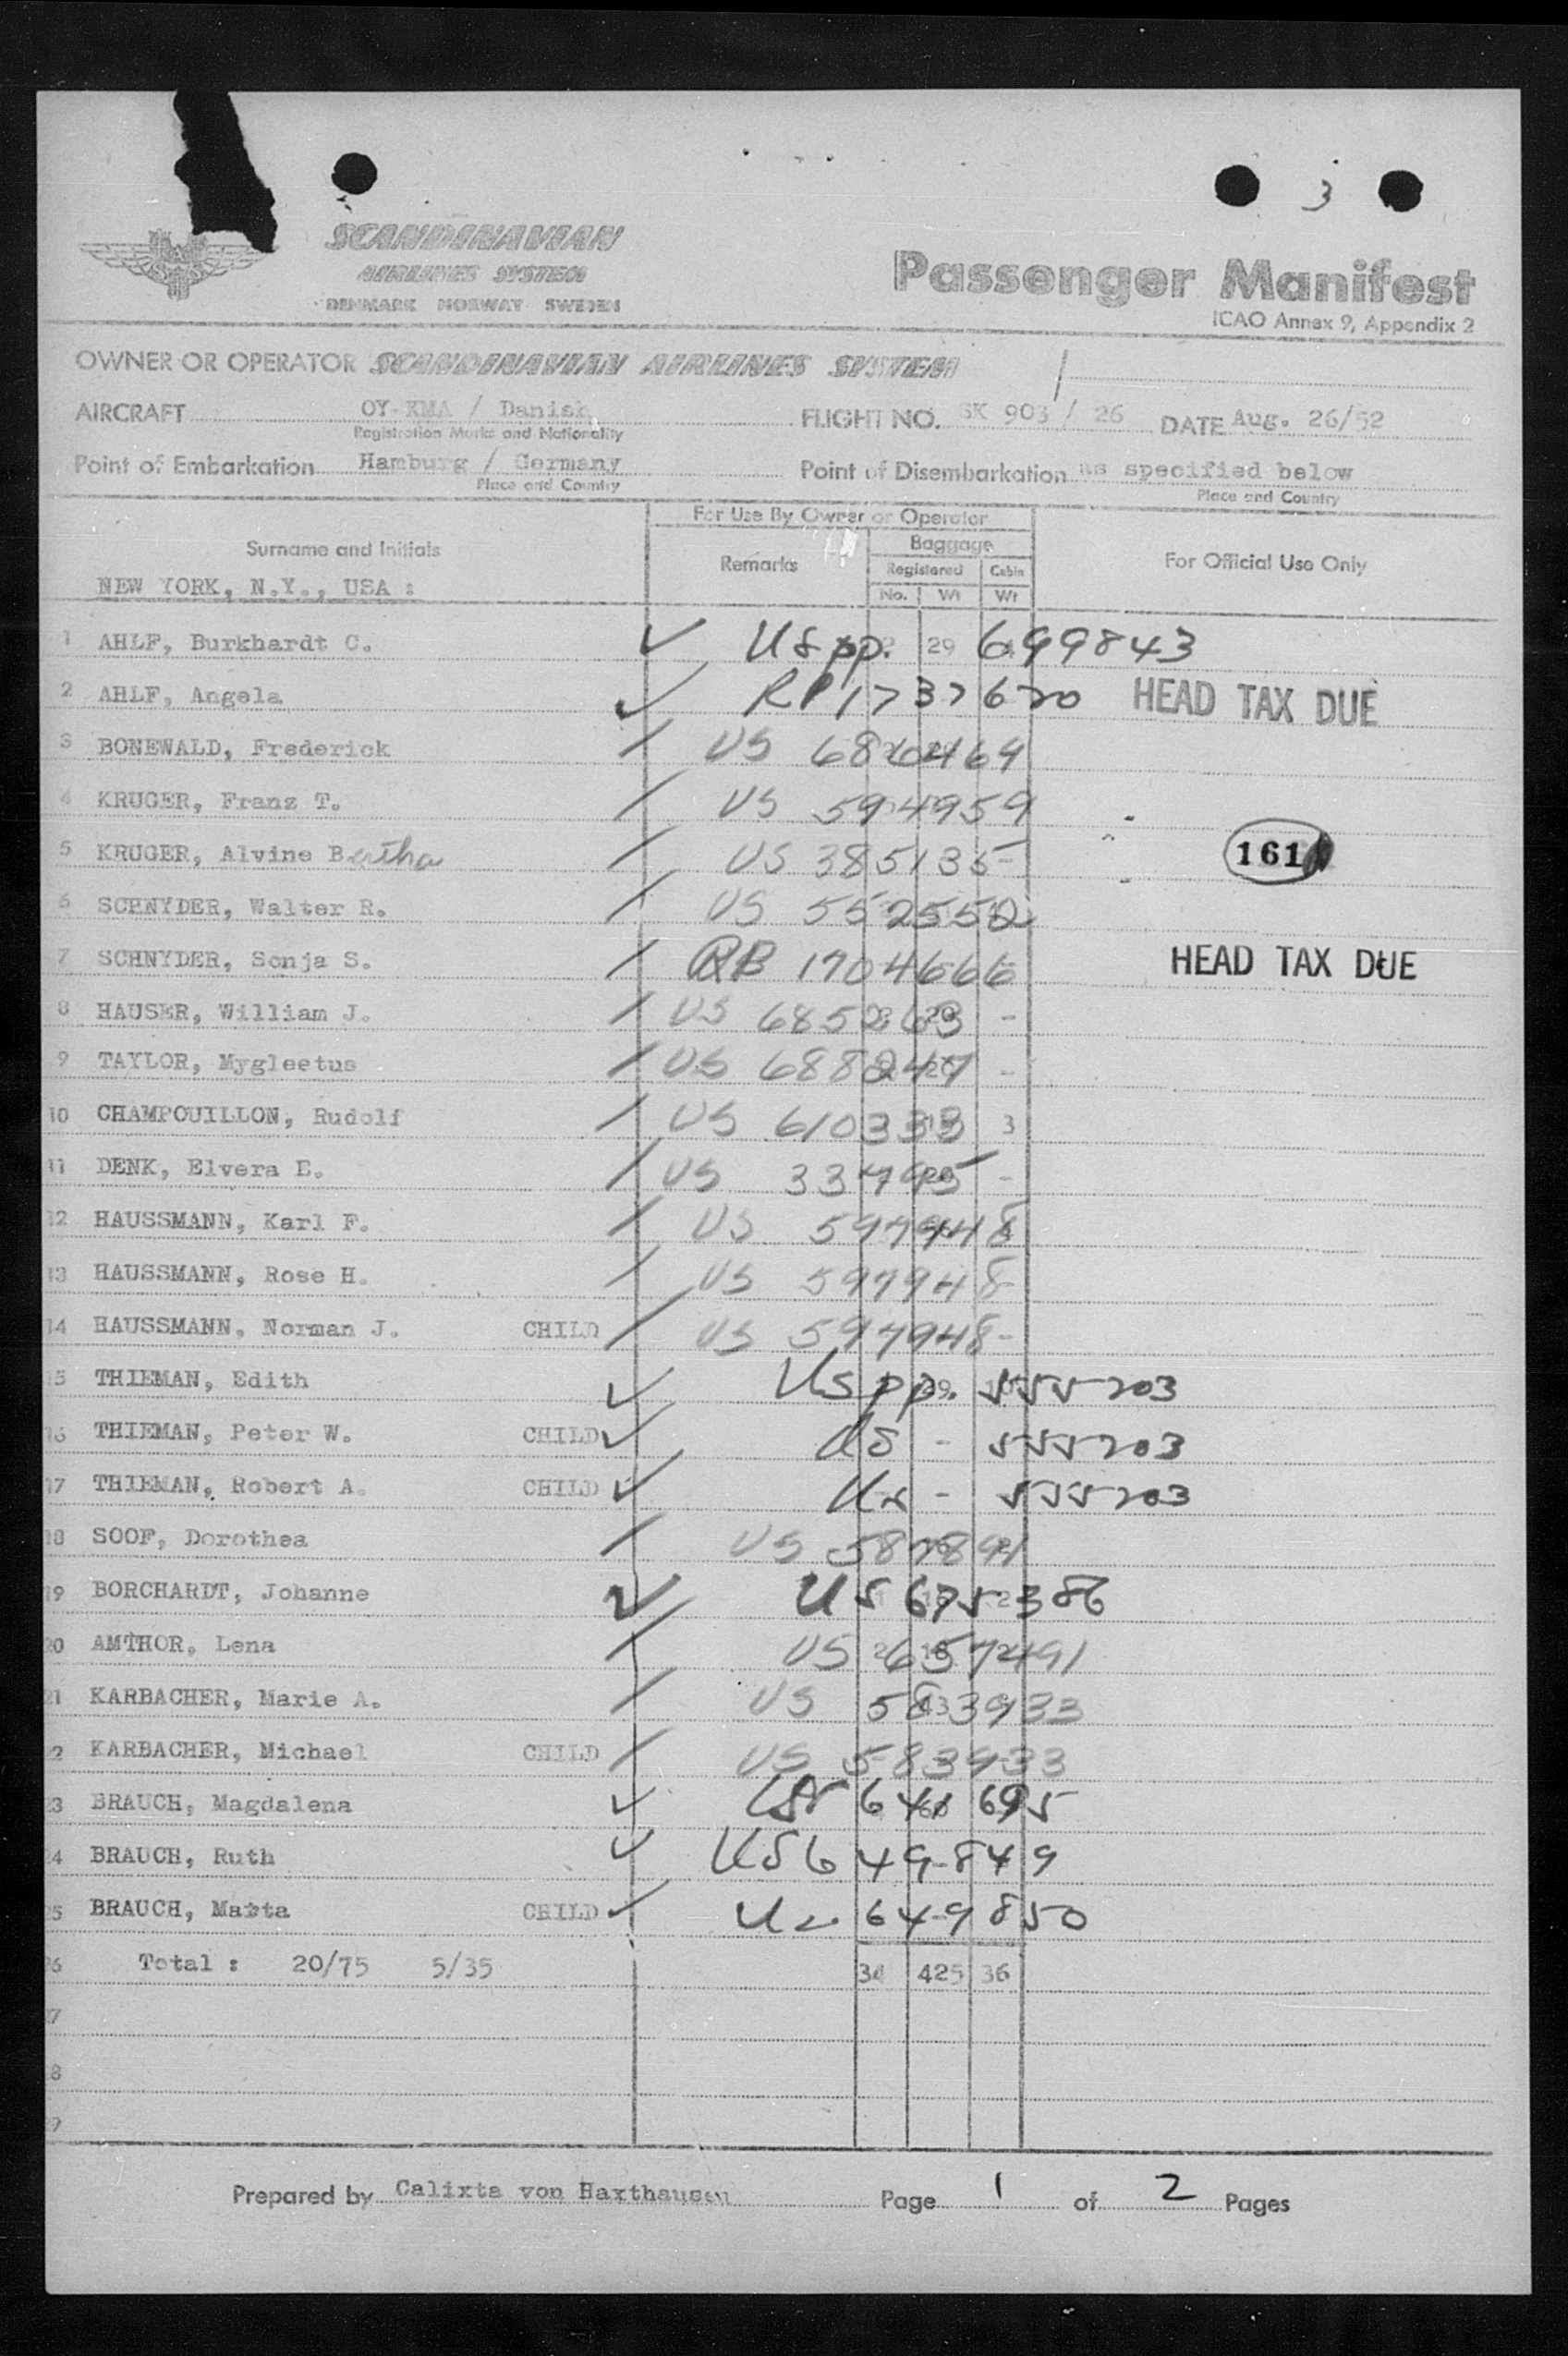 3
SCANDINAVIAN
AIRLINES SYSTEM
DENMARK NORWAY SWEDEN
Passenger Manifest
ICAO Annex 9, Appendix 2
OWNER OR OPERATOR SCANDINAVIAN AIRLINES SYSTEM
AIRCRAFT OY-KMA / Danish FLIGHT NO. SK 903 / 26 DATE Aug. 26/52
Registration Marks and Nationality
Point of Embarkation Hamburg / Germany Point of Disembarkation as specified below
Place and Country Place and Country
For Use By Owner or Operator
Surname and Initials Remarks Baggage For Official Use Only
Registered Cabin
NEW YORK, N.Y., USA : No. Wt Wt
1 AHLF, Burkhardt C. US pp. 29 699843
2 AHLF, Angela RP 1737620 HEAD TAX DUE
3 BONEWALD, Frederick US 6820464
4 KRUGER, Franz T. US 594959
5 KRUGER, Alvine Bertha US 385135 - 161
6 SCHNYDER, Walter R. US 552552
7 SCHNYDER, Sonja S. RP 1704666 HEAD TAX DUE
8 HAUSER, William J. US 685263 -
9 TAYLOR, Mygleetus US 688247 -
10 CHAMPOUILLON, Rudolf US 610333 3
11 DENK, Elvera E. US 337495 -
12 HAUSSMANN, Karl F. US 597948
13 HAUSSMANN, Rose H. US 597948
14 HAUSSMANN, Norman J. CHILD US 597948 -
15 THIEMAN, Edith US pp. 555203
16 THIEMAN, Peter W. CHILD US - 555203
17 THIEMAN, Robert A. CHILD US - 555203
18 SOOF, Dorothea US 587891
19 BORCHARDT, Johanne US 675386
20 AMTHOR, Lena US 657491
21 KARBACHER, Marie A. US 583933
22 KARBACHER, Michael CHILD US 583933
23 BRAUCH, Magdalena US 641695
24 BRAUCH, Ruth US 649849
25 BRAUCH, Marta CHILD US 649850
26 Total : 20/75 5/35 34 425 36
27
28
29
Prepared by Calixta von Haxthausen Page 1 of 2 Pages